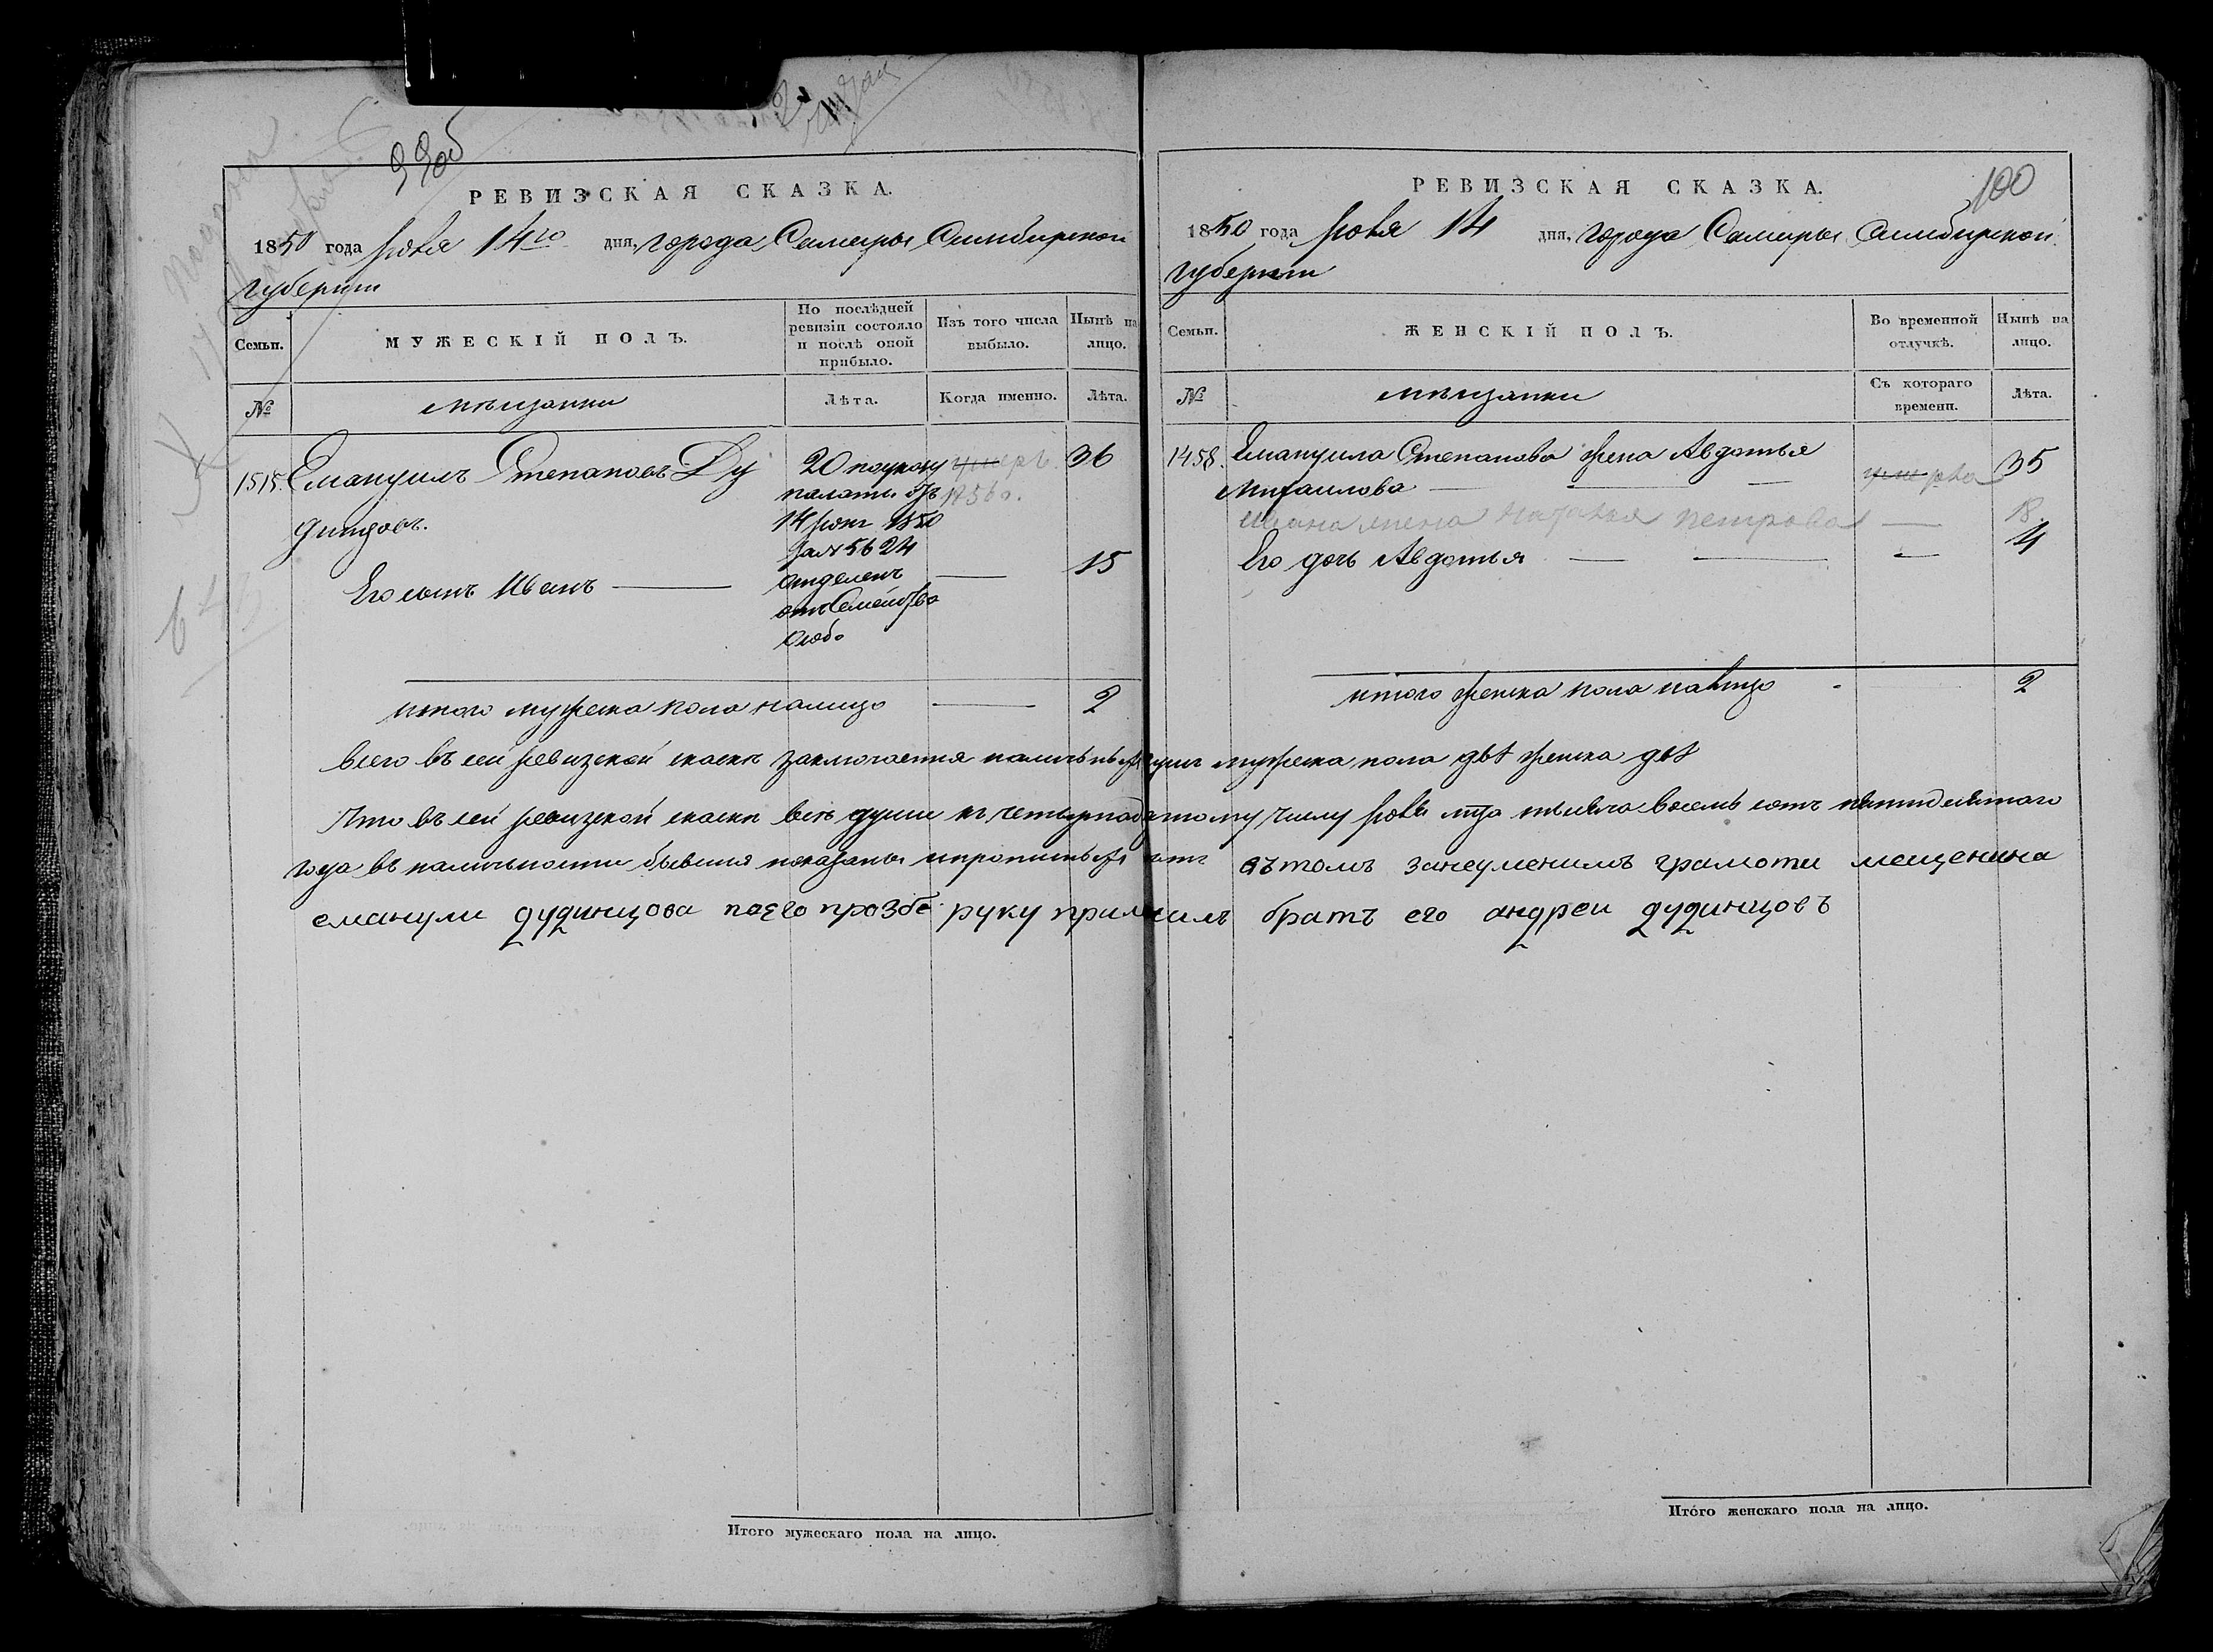 99об
РЕВИЗСКАЯ СКАЗКА.
1850 года Июня 14го дня, города Самары Симбирской
губернии
Семьи.
МУЖЕСКІЙ ПОЛЪ.
По послѣдней ревизіи состояло и послѣ оной прибыло.
Изъ того числа выбыло.
Нынѣ на лицо.
№
мѣщанки
Лѣта.
Когда именно.
Лѣта.
1515. Емануилъ Степановъ Ду
динцовъ.
20 по указу
палаты отъ
14 июня 1850
за № 5624
отделенъ
отъ Семейства
особо
умеръ
1856 г.
36
Его сынъ Иванъ
15
итого мужеска пола налицо 2
РЕВИЗСКАЯ СКАЗКА.
100
1850 года Июня 14 дня, города Самары Симбирской
губернии
Семьи.
ЖЕНСКІЙ ПОЛЪ.
Во временной отлучкѣ.
Нынѣ на лицо.
№
мѣщанки
Съ котораго времени.
Лѣта.
1458. Емануила Степанова жена Авдотья
Михаилова
умерла
35
Ивана жена Наталья Петрова 18
Его дочь Авдотья 4
итого женска пола налицо 2
всего въ сей ревизской скаске заключается наличныхъ душъ мужеска пола двѣ женска двѣ
Что въ сей ревизской скаске все души къ четырнадцатому числу июня мца тысяча восемь сотъ пятидесятаго
года въ наличности бывшия показаны и прописныхъ нетъ вътомъ занеумениемъ грамоти мещенина
еманули дудинцова поего прозбе руку приложилъ братъ его андреи дудинцовъ
Итого мужескаго пола на лицо.
Итого женскаго пола на лицо.